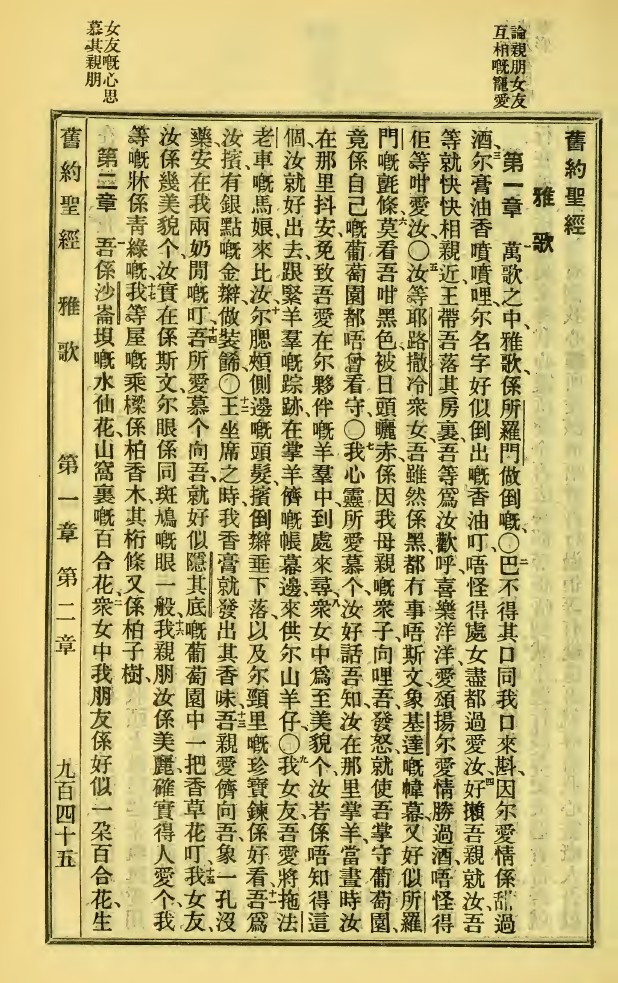 論親朋女友
互相嘅寵愛
女友嘅心思
慕其親朋
舊約聖經
雅歌
第一章 一萬歌之中、雅歌、係所羅門做倒嘅、〇二巴不得其口同我口來斟、因尔愛情係甜過
酒、三尔膏油香噴噴哩、尔名字好似倒出嘅香油叮、唔怪得處女盡都過愛汝、四好攋吾親就汝、吾
等就快快相親近、王帶吾落其房裏、吾等爲汝歡呼喜樂洋洋、愛頌揚尔愛情勝過酒、唔怪得
佢等咁愛汝、〇五汝等耶路撒冷衆女、吾雖然係黑、都冇事唔斯文、象基達嘅幃幕、又好似所羅
門嘅氈條、六莫看吾咁黑色、被日頭曬赤、係因我母親嘅衆子、向哩吾發怒、就使吾掌守葡萄園、
竟係自己嘅葡萄園都唔曾看守、〇七我心靈所愛慕个、汝好話吾知、汝在那里掌羊、當晝時汝
在那里抖安、免致吾愛在尔夥伴嘅羊羣中、到處來尋、八衆女中爲至美貌个、汝若係唔知得這
個、汝就好出去、跟緊羊羣嘅踪跡、在掌羊儕嘅帳幕邊、來供尔山羊仔、〇九我女友、吾愛將拖法
老車嘅馬娘來比汝、十尔腮頰側邊嘅頭髮、擯倒辮垂下落、以及尔頸里嘅珍寶鍊、係好看、十一吾爲
汝擯有銀點嘅金辮做裝餙、〇十二王坐席之時、我香膏就發出其香味、十三吾親愛儕向吾、象一孔沒
藥、安在我兩奶閒嘅叮、十四吾所愛慕个向吾、就好似隱其底嘅葡萄園中一把香草花叮、十五我女友、
汝係幾美貌个、汝實在係斯文、尔眼係同斑鳩嘅眼一般、十六我親朋、汝係美麗、確實得人愛个、我
等嘅牀係青綠嘅、十七我等屋嘅乘樑係柏香木、其桁條又係柏子樹、
第二章 一吾係沙崙垻嘅水仙花、山窩裏嘅百合花、二衆女中我朋友係好似一朶百合花、生
舊約聖經 雅歌 第一章 第二章 九百四十五